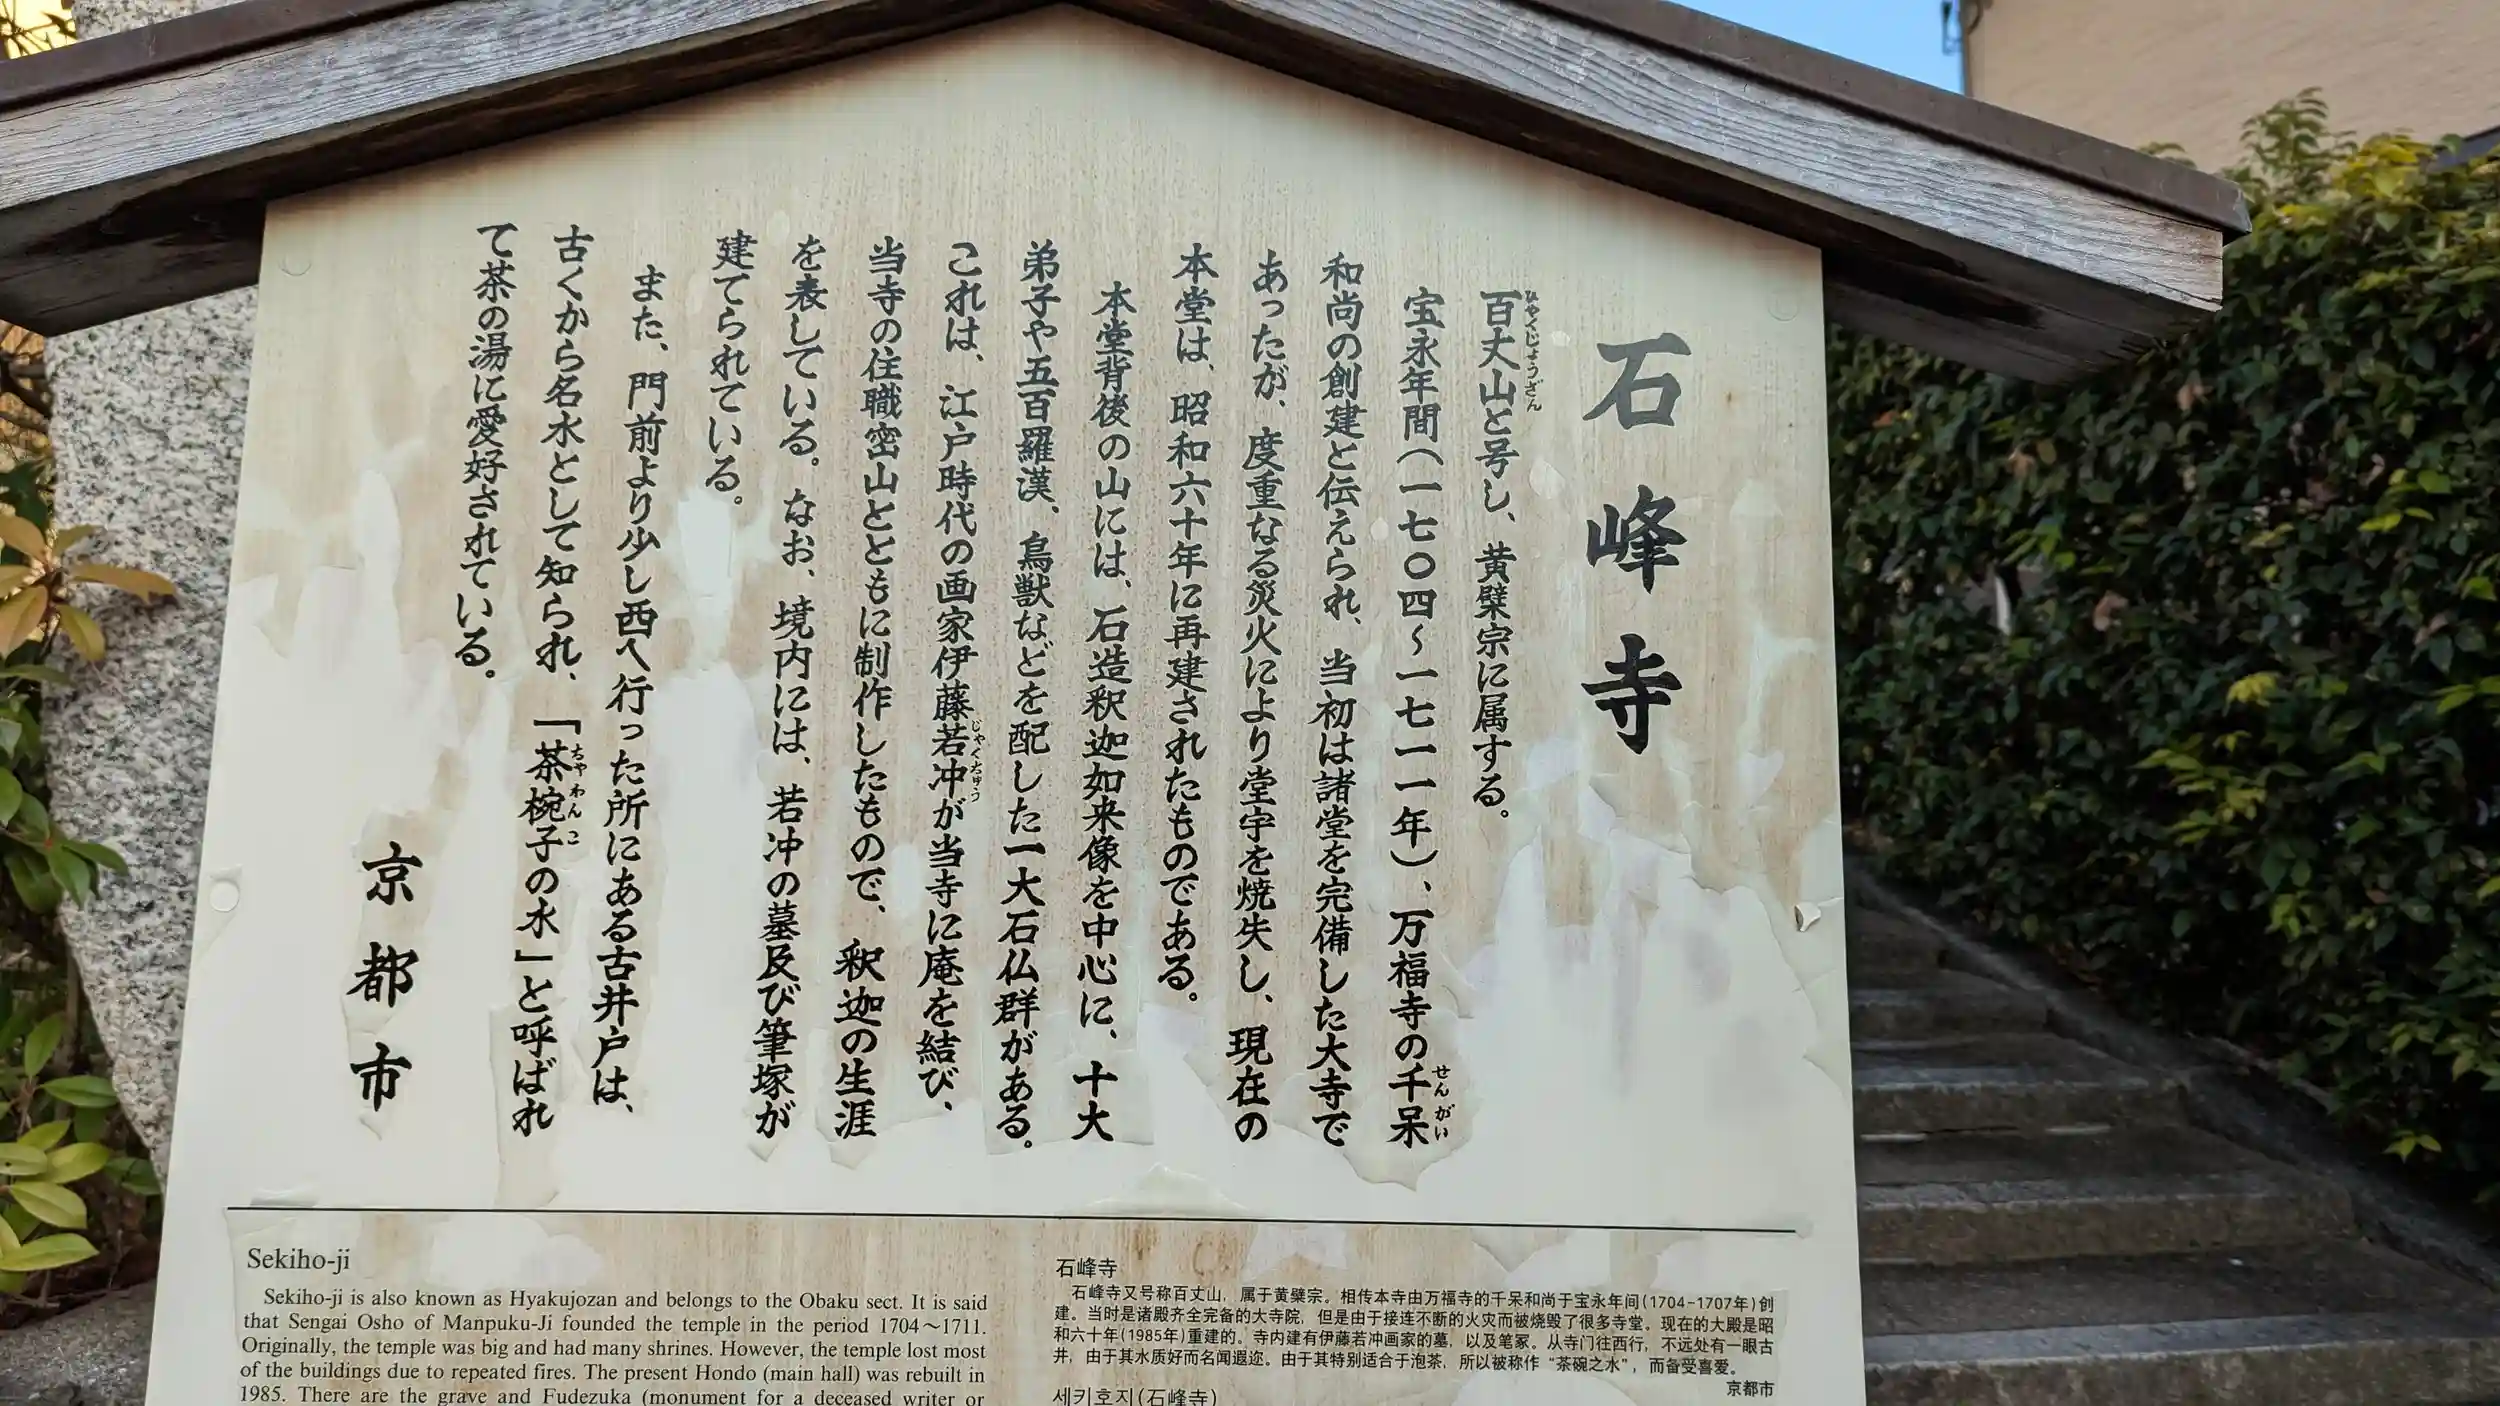 石峰寺
百丈山と号し、黄檗宗に属する。
ひゃくじょうざん
宝永年間（一七〇四～一七一一年）、万福寺の千呆
せんがい
和尚の創建と伝えられ、当初は諸堂を完備した大寺で
あったが、度重なる災火により堂宇を焼失し、現在の
本堂は、昭和六十年に再建されたものである。
本堂背後の山には、石造釈迦如来像を中心に、十大
弟子や五百羅漢、鳥獣などを配した一大石仏群がある。
これは、江戸時代の画家伊藤若冲が当寺に庵を結び、
じゃくちゅう
当寺の住職密山とともに制作したもので、釈迦の生涯
を表している。なお、境内には、若冲の墓及び筆塚が
建てられている。
また、門前より少し西へ行った所にある古井戸は、
古くから名水として知られ、「茶椀子の水」と呼ばれ
ちゃわんこ
て茶の湯に愛好されている。
京都市
Sekiho-ji
Sekiho-ji is also known as Hyakujozan and belongs to the Obaku sect. It is said
that Sengai Osho of Manpuku-Ji founded the temple in the period 1704～1711.
Originally, the temple was big and had many shrines. However, the temple lost most
of the buildings due to repeated fires. The present Hondo (main hall) was rebuilt in
1985. There are the grave and Fudezuka (monument for a deceased writer or
石峰寺
石峰寺又号称百丈山，属于黄檗宗。相传本寺由万福寺的千呆和尚于宝永年间(1704-1707年)创
建。当时是诸殿齐全完备的大寺院，但是由于接连不断的火灾而被烧毁了很多寺堂。现在的大殿是昭
和六十年(1985年)重建的。寺内建有伊藤若冲画家的墓，以及笔冢。从寺门往西行，不远处有一眼古
井，由于其水质好而名闻遐迩。由于其特别适合于泡茶，所以被称作“茶碗之水”，而备受喜爱。
京都市
세키호지(石峰寺)